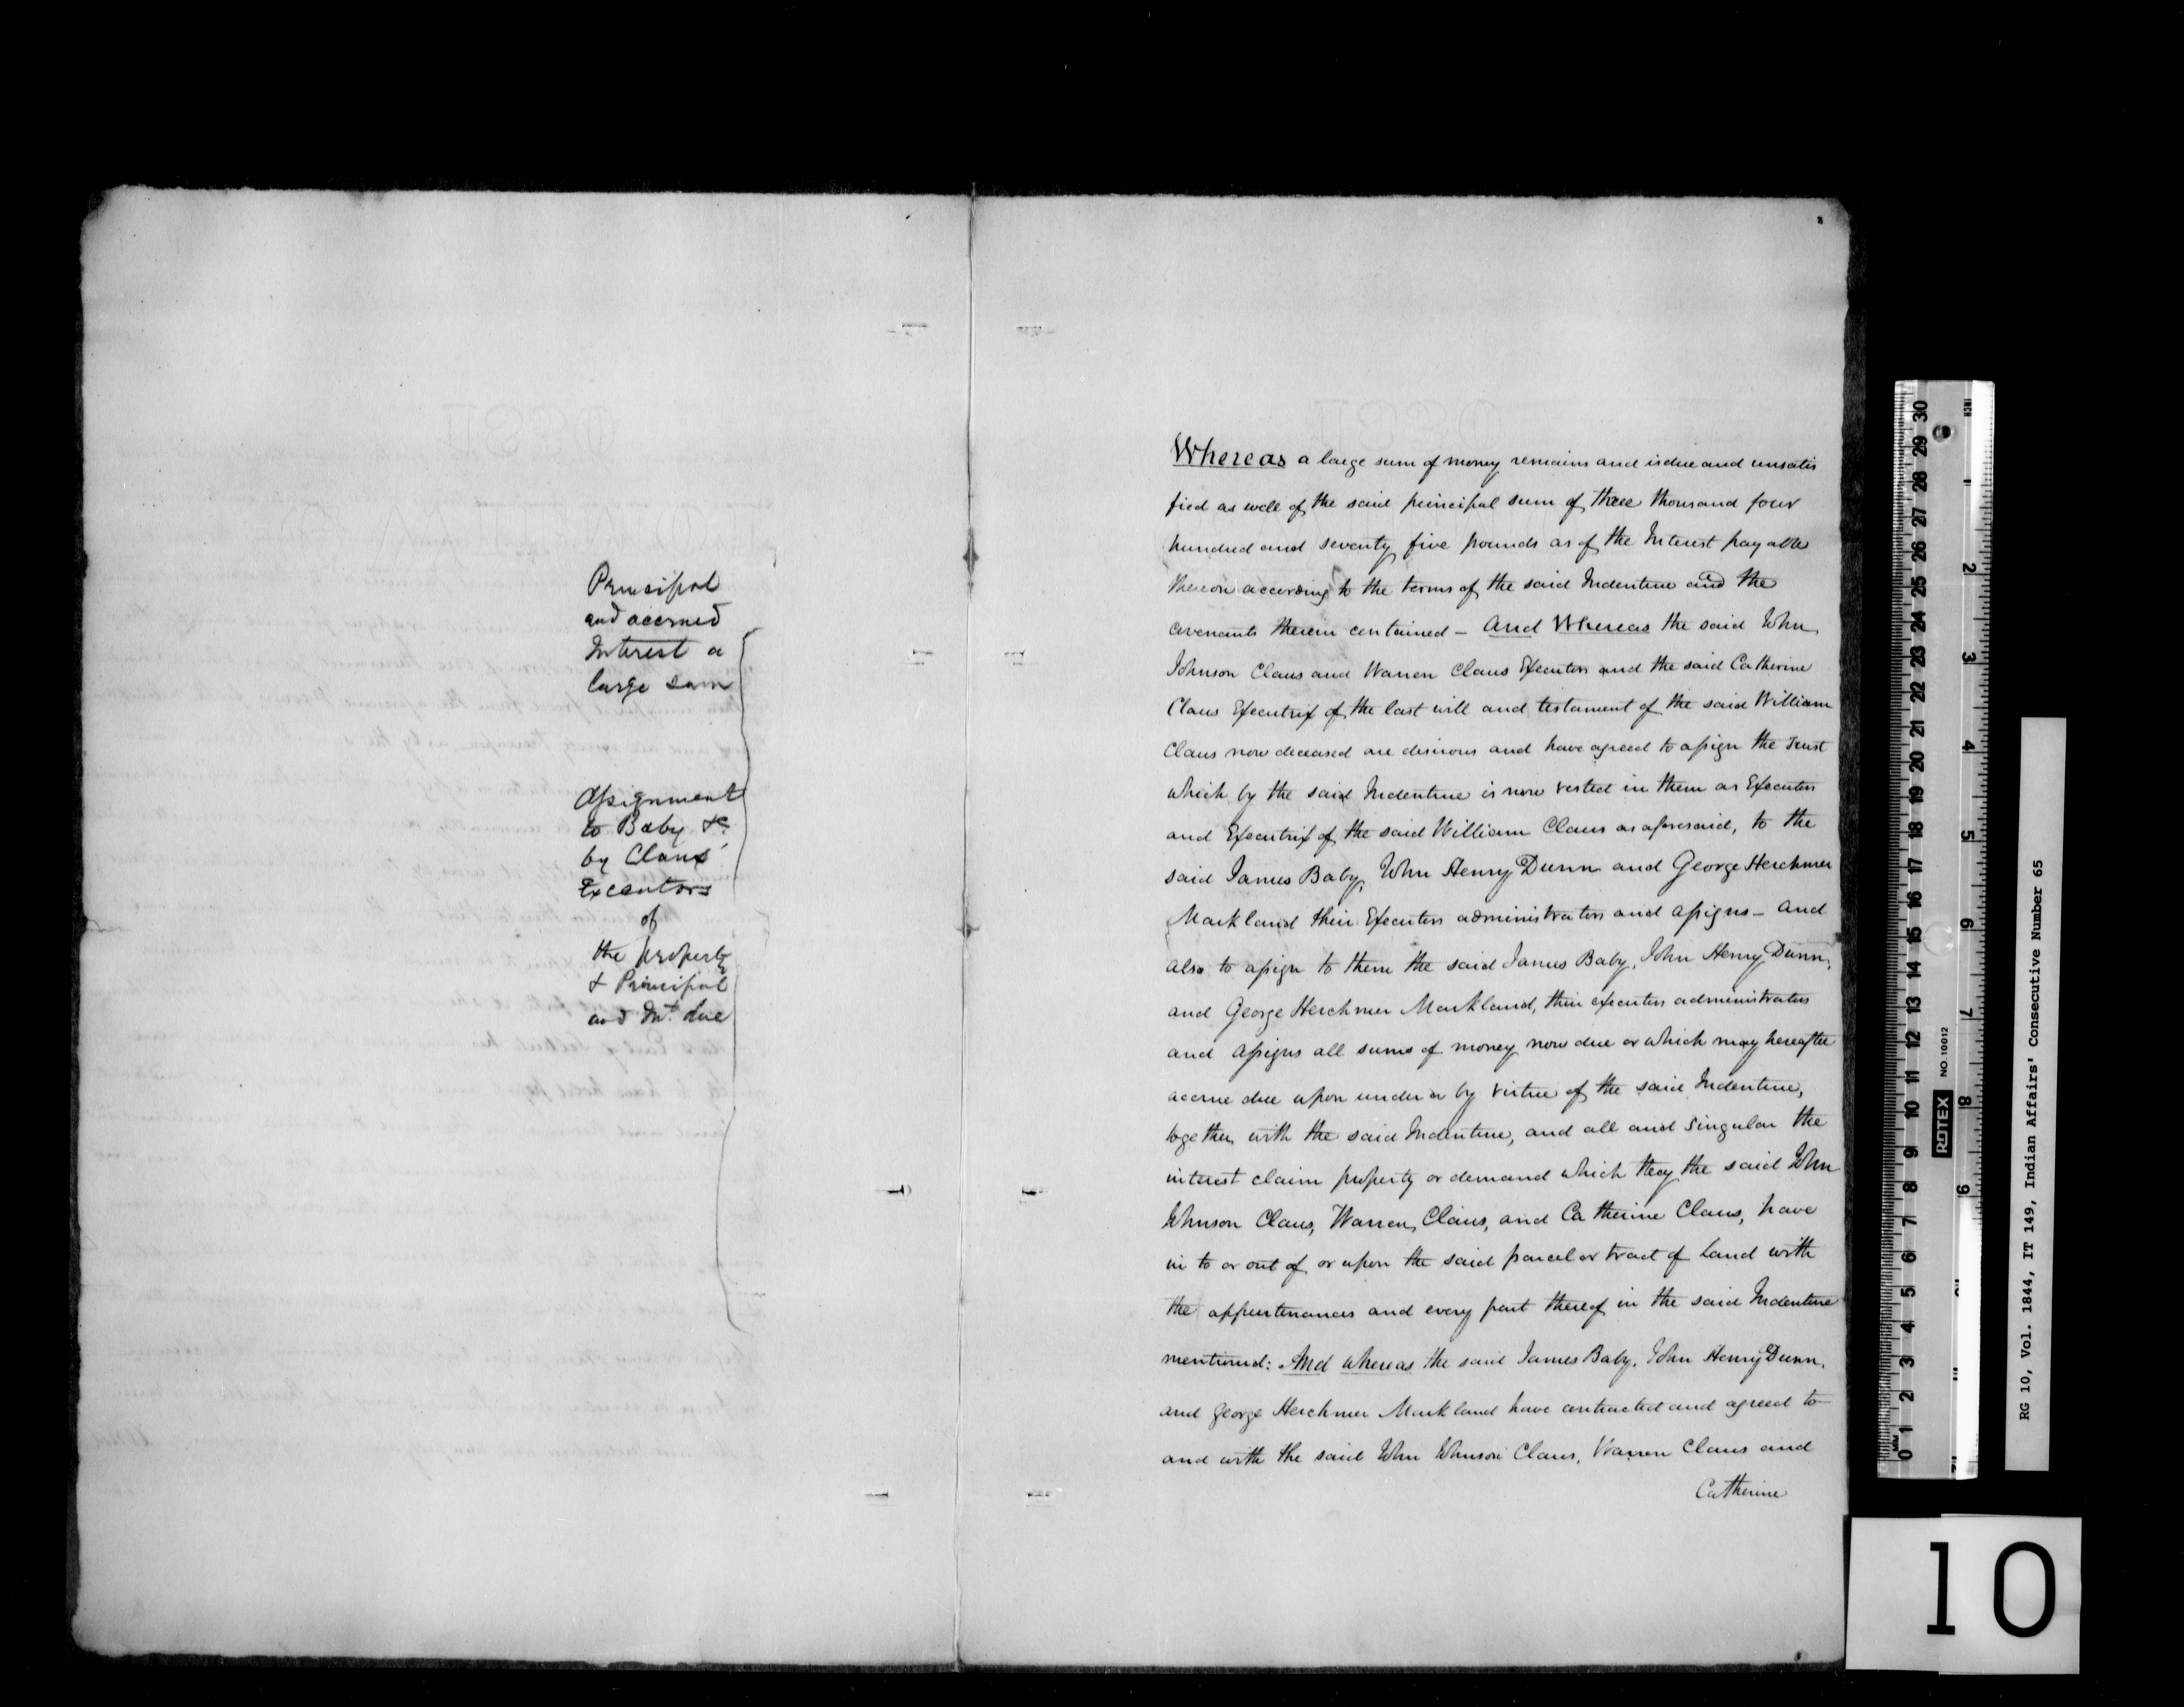 Principal
and accrued
Interest a
large sum
Assignment
to Baby &c.
by Claus'
Executors
of
the property
& Principal
and Int. due
Whereas a large sum of money remains and is due and unsatis
fied as well of the said principal sum of three thousand four
hundred and seventy five pounds as of the Interest payable
thereon according to the terms of the said Indenture and the
covenants therein contained – And Whereas the said John
Johnson Claus and Warren Claus Executors and the said Catherine
Claus Executrix of the last will and testament of the said William
Claus now deceased are desirous and have agreed to assign the Trust
which by the said Indenture is now vested in them as Executors
and Executrix of the said William Claus as aforesaid, to the
said James Baby, John Henry Dunn and George Herchmer
Markland their Executors administrators and assigns – and
also to assign to them the said James Baby, John Henry Dunn,
and George Herchmer Markland, their executors administrators
and assigns all sums of money now due or which may hereafter
accrue due upon under or by virtue of the said Indenture,
together with the said Indenture, and all and singular the
interest claim property or demand which they the said John
Johnson Claus, Warren Claus, and Catherine Claus, have
in to or out of or upon the said parcel or tract of Land with
the appurtenances and every part thereof in the said Indenture
mentioned: And whereas the said James Baby, John Henry Dunn,
and George Herchmer Markland have contracted and agreed to
and with the said John Johnson Claus, Warren Claus and
Catherine
RG 10, Vol. 1844, IT 149, Indian Affairs' Consecutive Number 65
ROTEX NO 10012
10